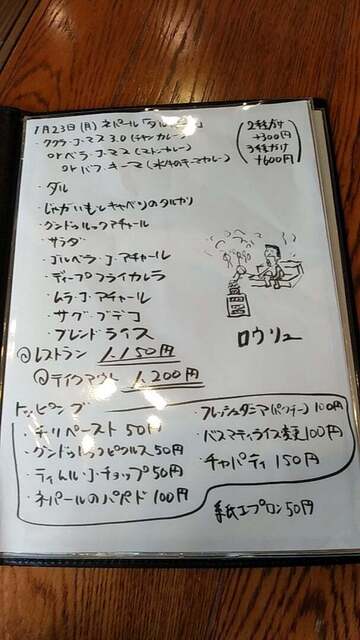 1月23日(月) ネパール「ダル
・ククラ・J・マス 3.0 (チキンカレー)
orベラ・J・マス (マトンカレー)
orバフ・キーマ (水牛のキーマカレー)
(2種がけ
+300円
3種がけ
+600円)
・ダル
・じゃがいもとキャベツのタルカリ
・グンドゥルックアチャール
・サラダ
・ゴルベラ・J・アチャール
・ディープフライカレラ
・ムラ・J・アチャール
・サグ・ブテコ
・ブレンドライス
ロウリュ
レストラン 1,150円
テイクアウト 1,200円
トッピング
・チリペースト 50円
・グンドゥルックピクルス 50円
・ティムル・J・チョップ 50円
・ネパールのパパド 100円
・フレッシュダニア(パクチー) 100円
・バスマティライス変更 100円
・チャパティ 150円
紙エプロン 50円